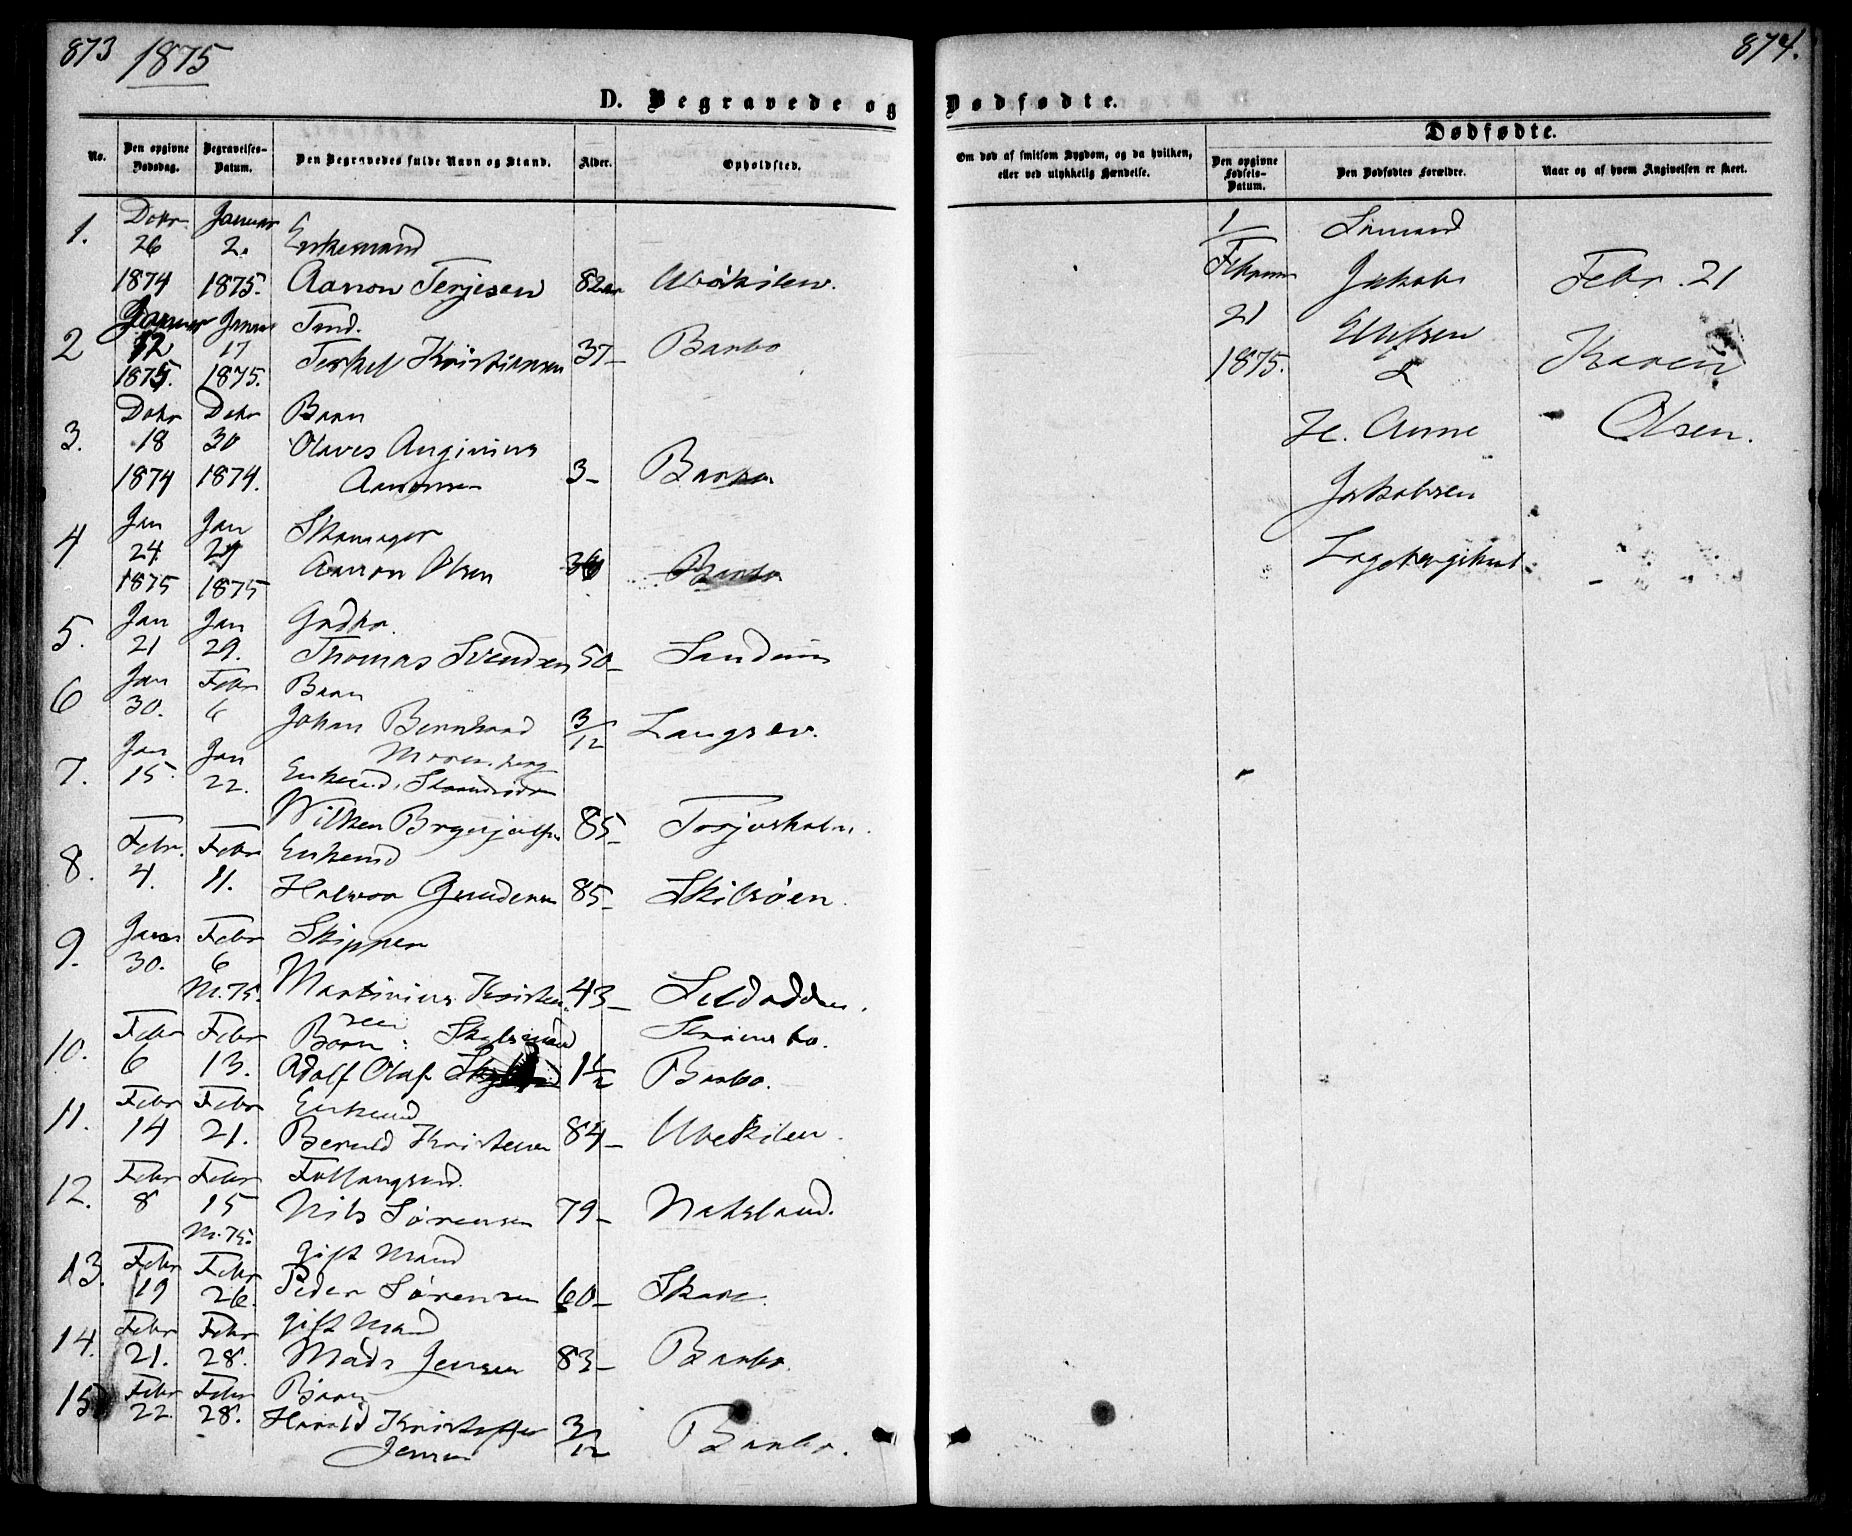 873 1875
874.
D. Begravede og Dødfødte.
Dødfødte.
No.
Den opgivne Dødsdag.
Begravelses-Datum.
Den Begravedes fulde Navn og Stand.
Alder.
Opholdsted.
Om død af smitsom Sygdom, og da hvilken,
eller ved ulykkelig Hændelse.
Den opgivne Fødsels-Datum.
Den Dødfødtes Forældre.
Naar og af hvem Angivelsen er skeet.
1. Dcbr Januar
26 2. Enkemand
1874 1875. Aanon Terjesen 82
2 Januar Janr
12 17
1875. 1875. Terkel Kristiansen 37- Barbo
3. Dcbr Dcbr Barn
18 30 Olaves
1874 1874. Aanonsen 3- Barbo.
4 Jan Jan
24 29 Aanon Olsen Barbo
1875 1875
5. Jan Jan
21 29. Thomas Svendsen 50-
6 Jan Febr Barn
30. 6 Johan Bernhard 3/12 Langsev.
7. Jan Jan
15. 22. Enkemd.
Wilken 85-
8. Febr. Febr Enkemd
4. 11. Halvor Gundersen 85- Skilsøen.
9. Janr Febr Skipper
30. 6 Martinius Kristen 43-
Nr. 75. sen
10. Febr Febr Barn:
6 13. Adolf Olaf 1 1/2 Barbo.
11. Febr Febr Enkemd
14 21. Beruld Kristensen 84-
12. Febr Febr
8 15 Nils Sørensen 79-
Nr. 75.
13. Febr Febr gift Mand
19 26. Peder Sørensen 60- Skare.
14. Febr Febr gift Mand
21. 28. Mads Jensen 83- Barbo.
15 Febr Febr Barn
22. 28. Harald Kristoffer 3/12 Barbo.
Jensen
1/
Februar
21
1875.
Sømand
Jakob
Ellefsen
&
H. Anne
Jakobsen
Febr. 21
Karen
Olsen.